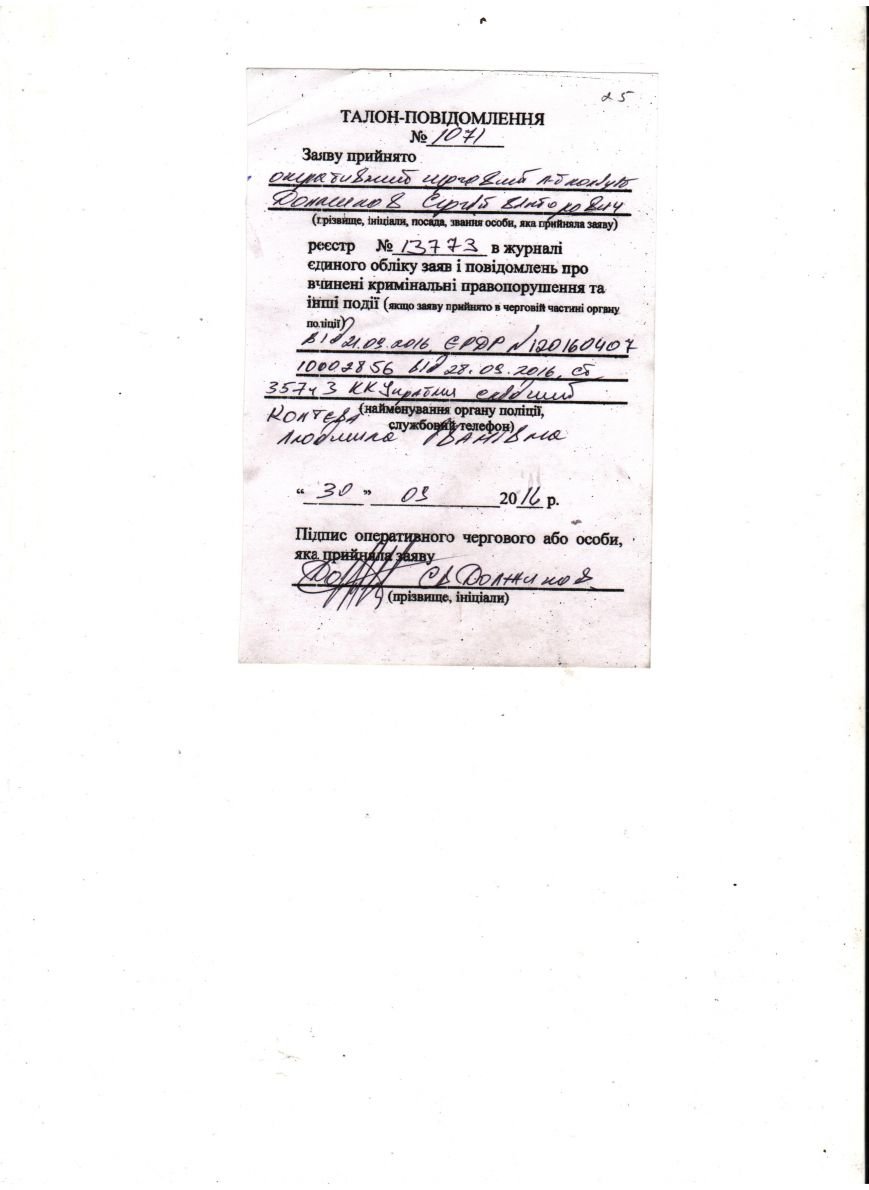 25
ТАЛОН-ПОВІДОМЛЕННЯ
№ 1071
Заяву прийнято
оперативний черговий
Должиков Сергій Вікторович
(прізвище, ініціали, посада, звання особи, яка прийняла заяву)
реєстр № 13773 в журналі
єдиного обліку заяв і повідомлень про
вчинені кримінальні правопорушення та
інші події (якщо заяву прийнято в черговій частині органу
поліції)
від 21.09.2016 ЄРДР №120160407
10002856 від 28.09.2016, ст
357ч3 ККУкраїни слідчий
(найменування органу поліції,
службовий телефон)
Коптєва
Людмила Іванівна
“ 30 ” 09 2016 р.
Підпис оперативного чергового або особи,
яка прийняла заяву
СВ Должиков
(прізвище, ініціали)